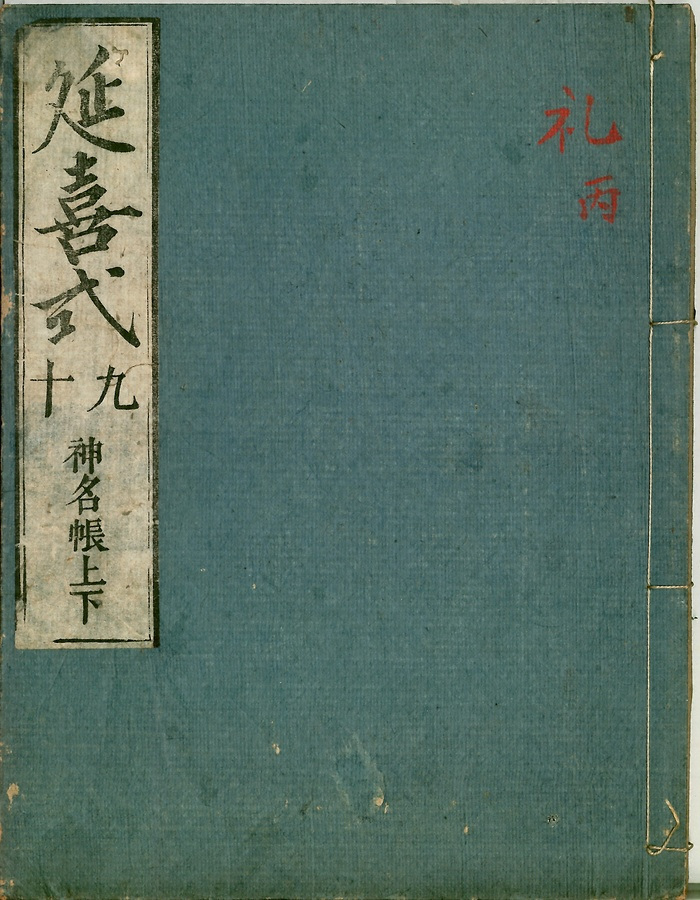 礼
丙
延喜式
九
十
神名帳上下